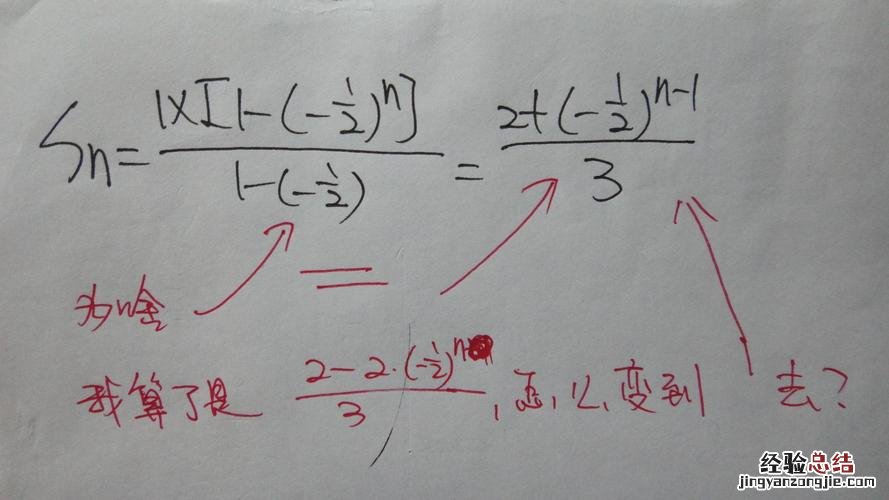 Sn = 1×[1-(-1/2)^n] / 1-(-1/2) = 2+(-1/2)^(n-1) / 3
为啥 =
我算了是 2-2·(-1/2)^n / 3 , 怎么变到 去?
经验总结
jingyanzongjie.com